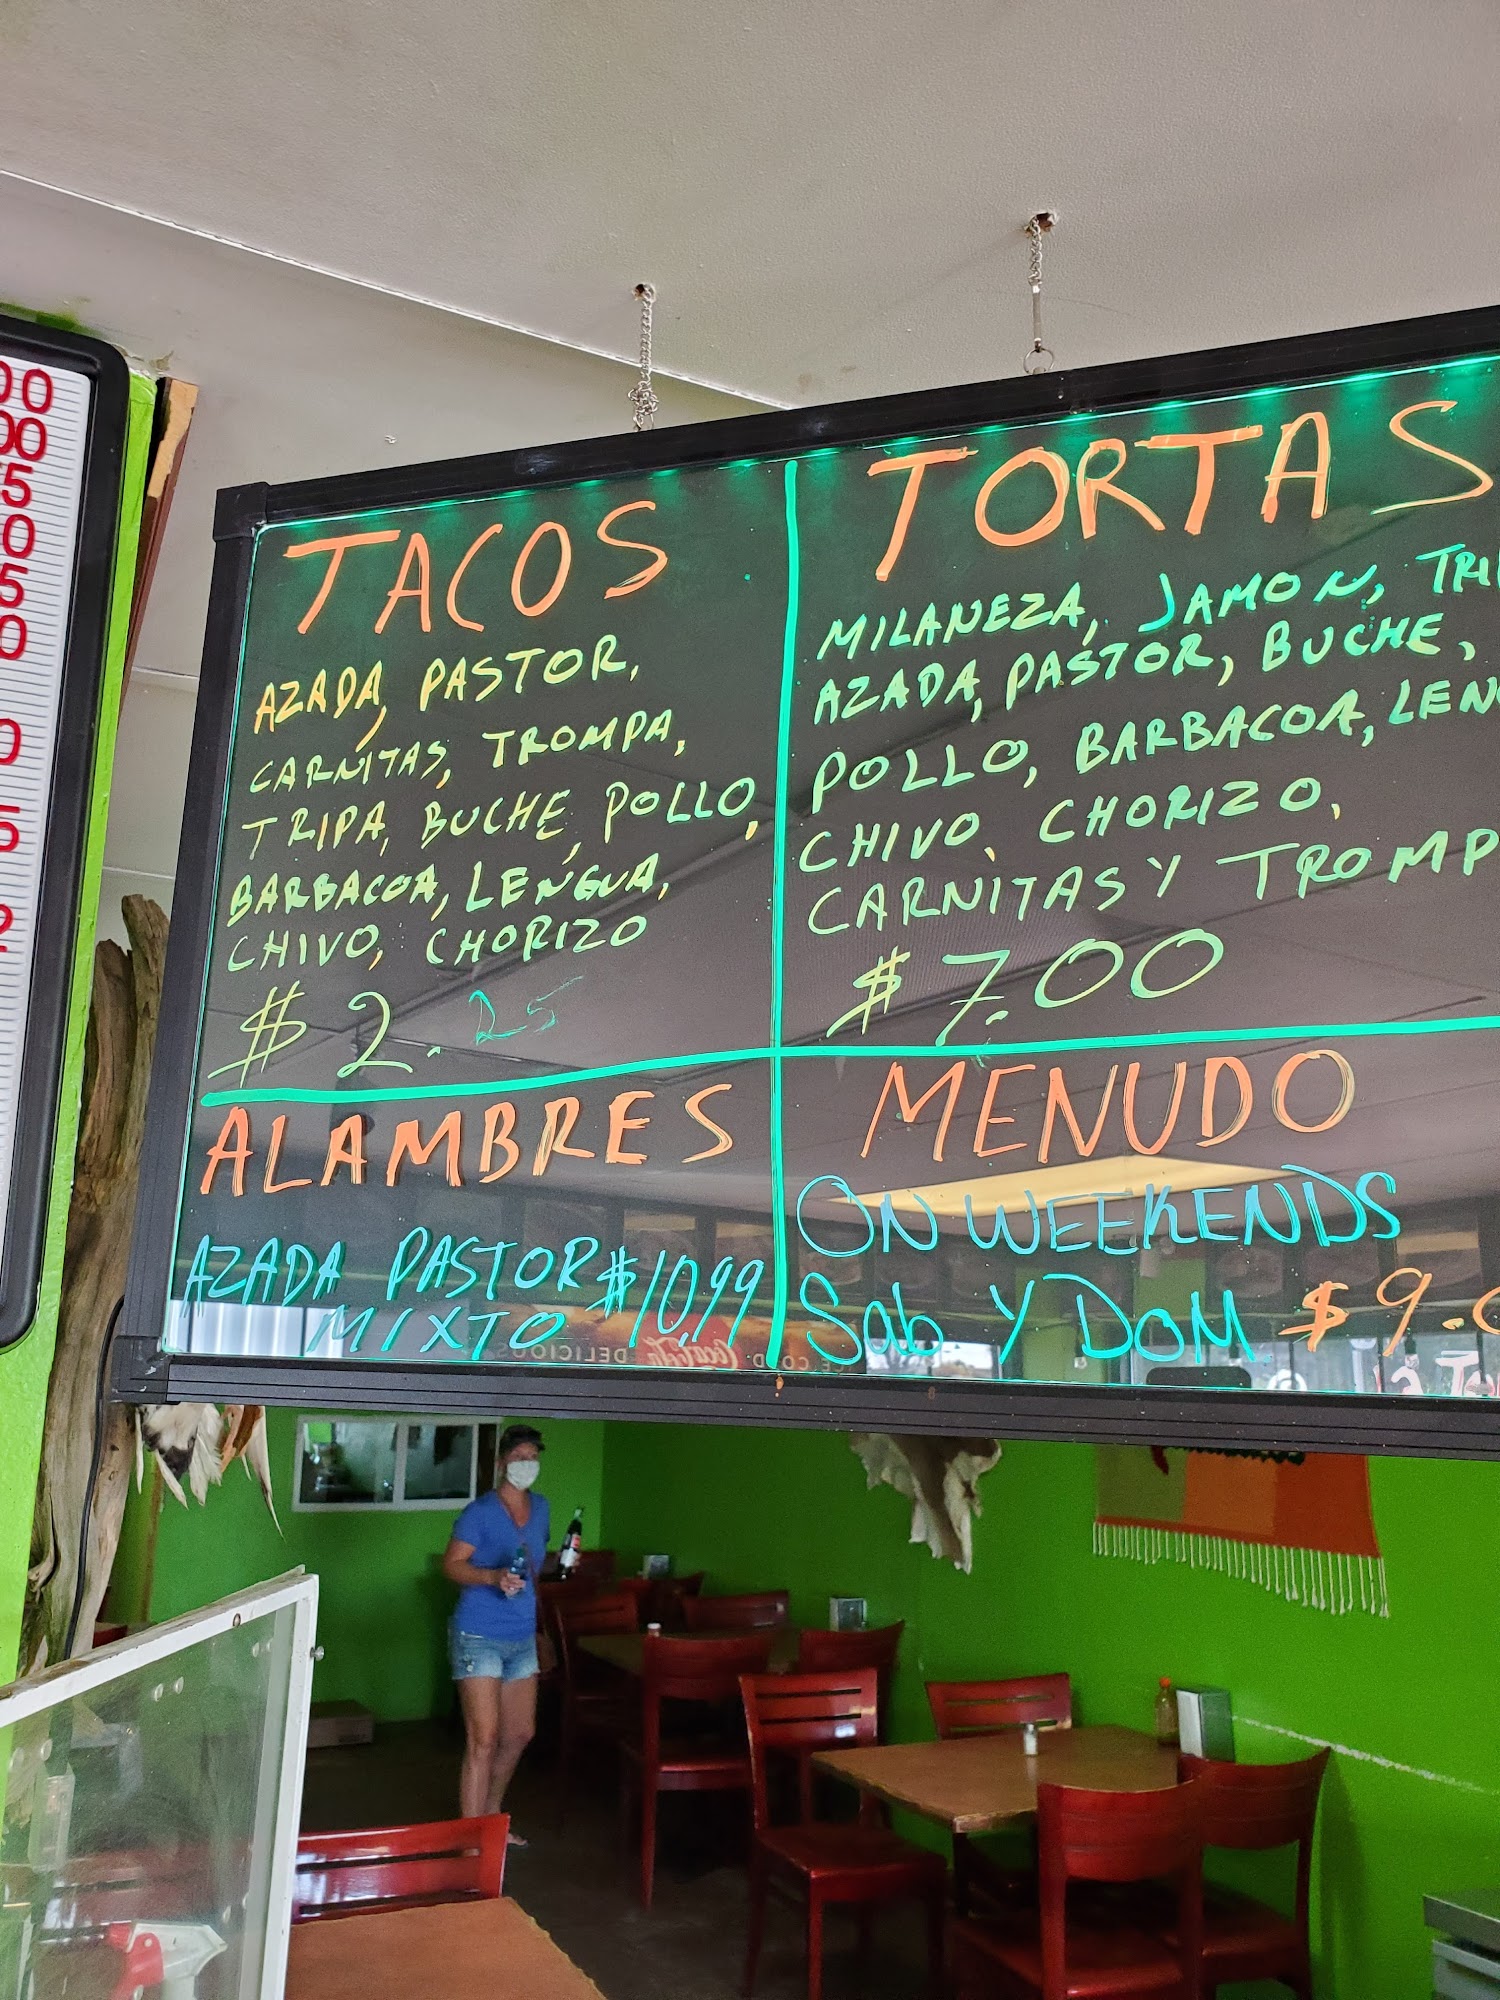 00
00
5
0
5
0
0
5
2
TACOS
AZADA, PASTOR,
CARNITAS, TROMPA,
TRIPA, BUCHE, POLLO,
BARBACOA, LENGUA,
CHIVO, CHORIZO
$ 2.25
TORTAS
MILANEZA, JAMON, TRI
AZADA, PASTOR, BUCHE,
POLLO, BARBACOA, LEN
CHIVO, CHORIZO,
CARNITAS Y TROMP
$ 7.00
ALAMBRES
AZADA PASTOR $10.99
MIXTO
MENUDO
ON WEEKENDS
Sab Y DOM $9.
DELICIOUS Coca-Cola